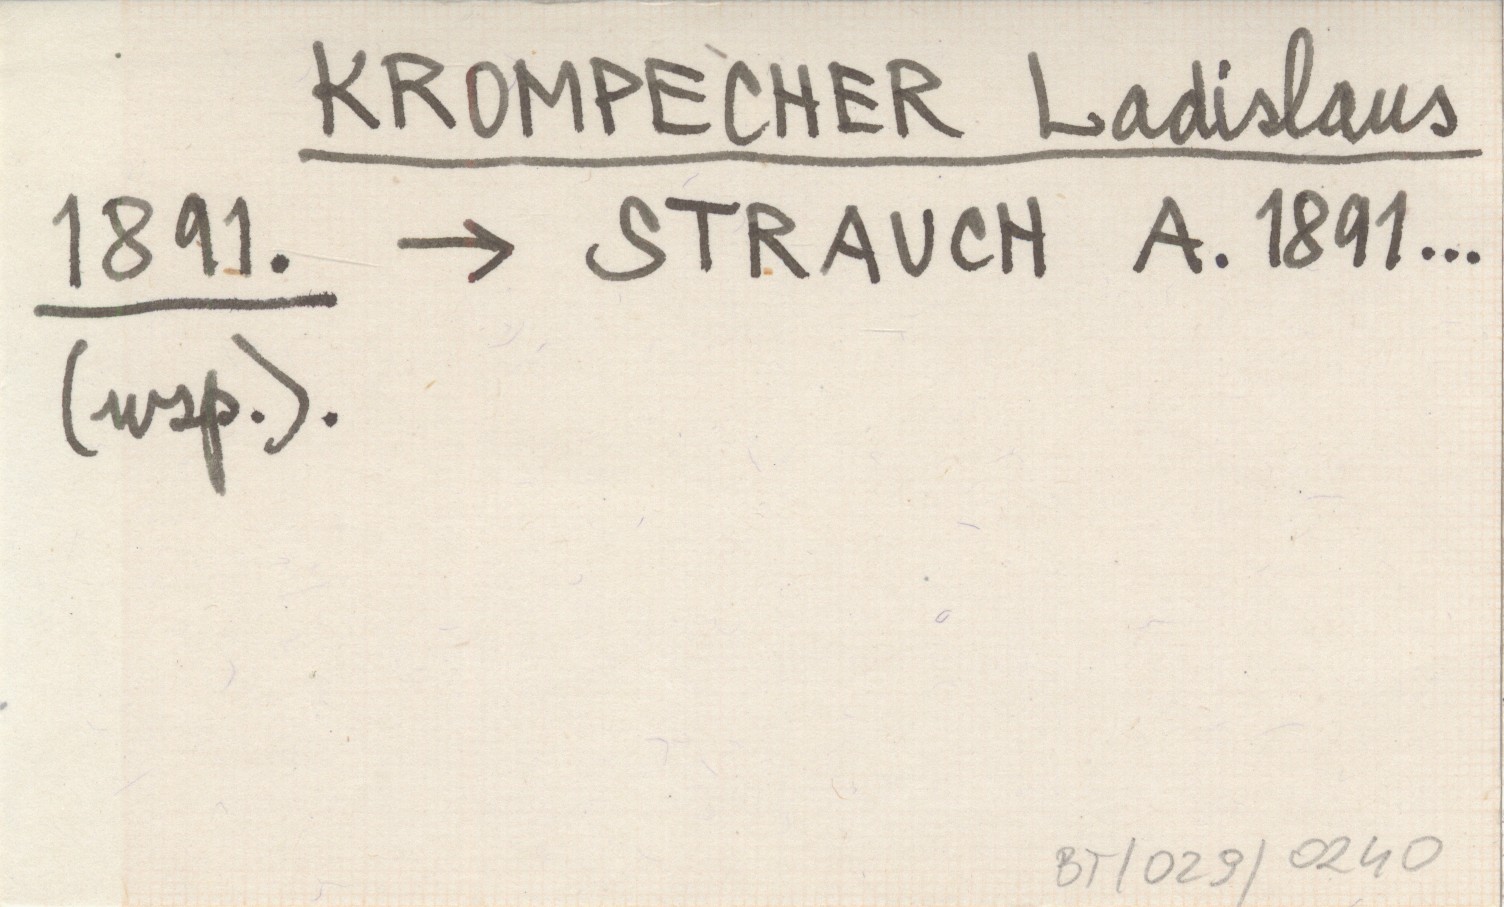 KROMPECHER Ladislaus
1891. → STRAUCH A. 1891...
(wsp.).
BT/029/0240